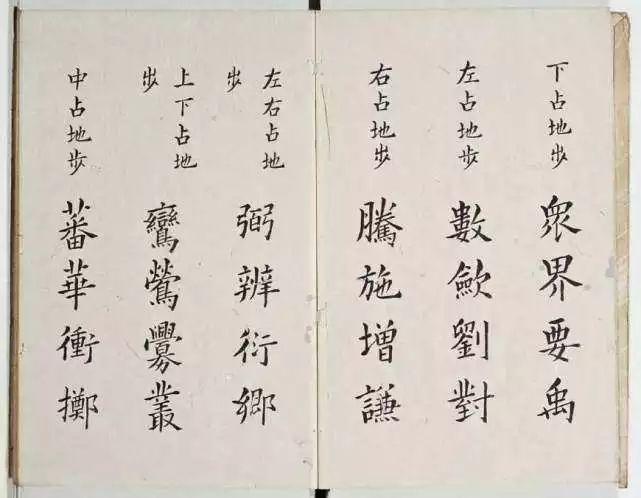 下占地步
衆界要禹
左占地步
數歛劉對
右占地步
騰施增謙
左右占地
步
弼辨衍鄉
上下占地
步
鸞鶯釁叢
中占地步
蕃華衝擲